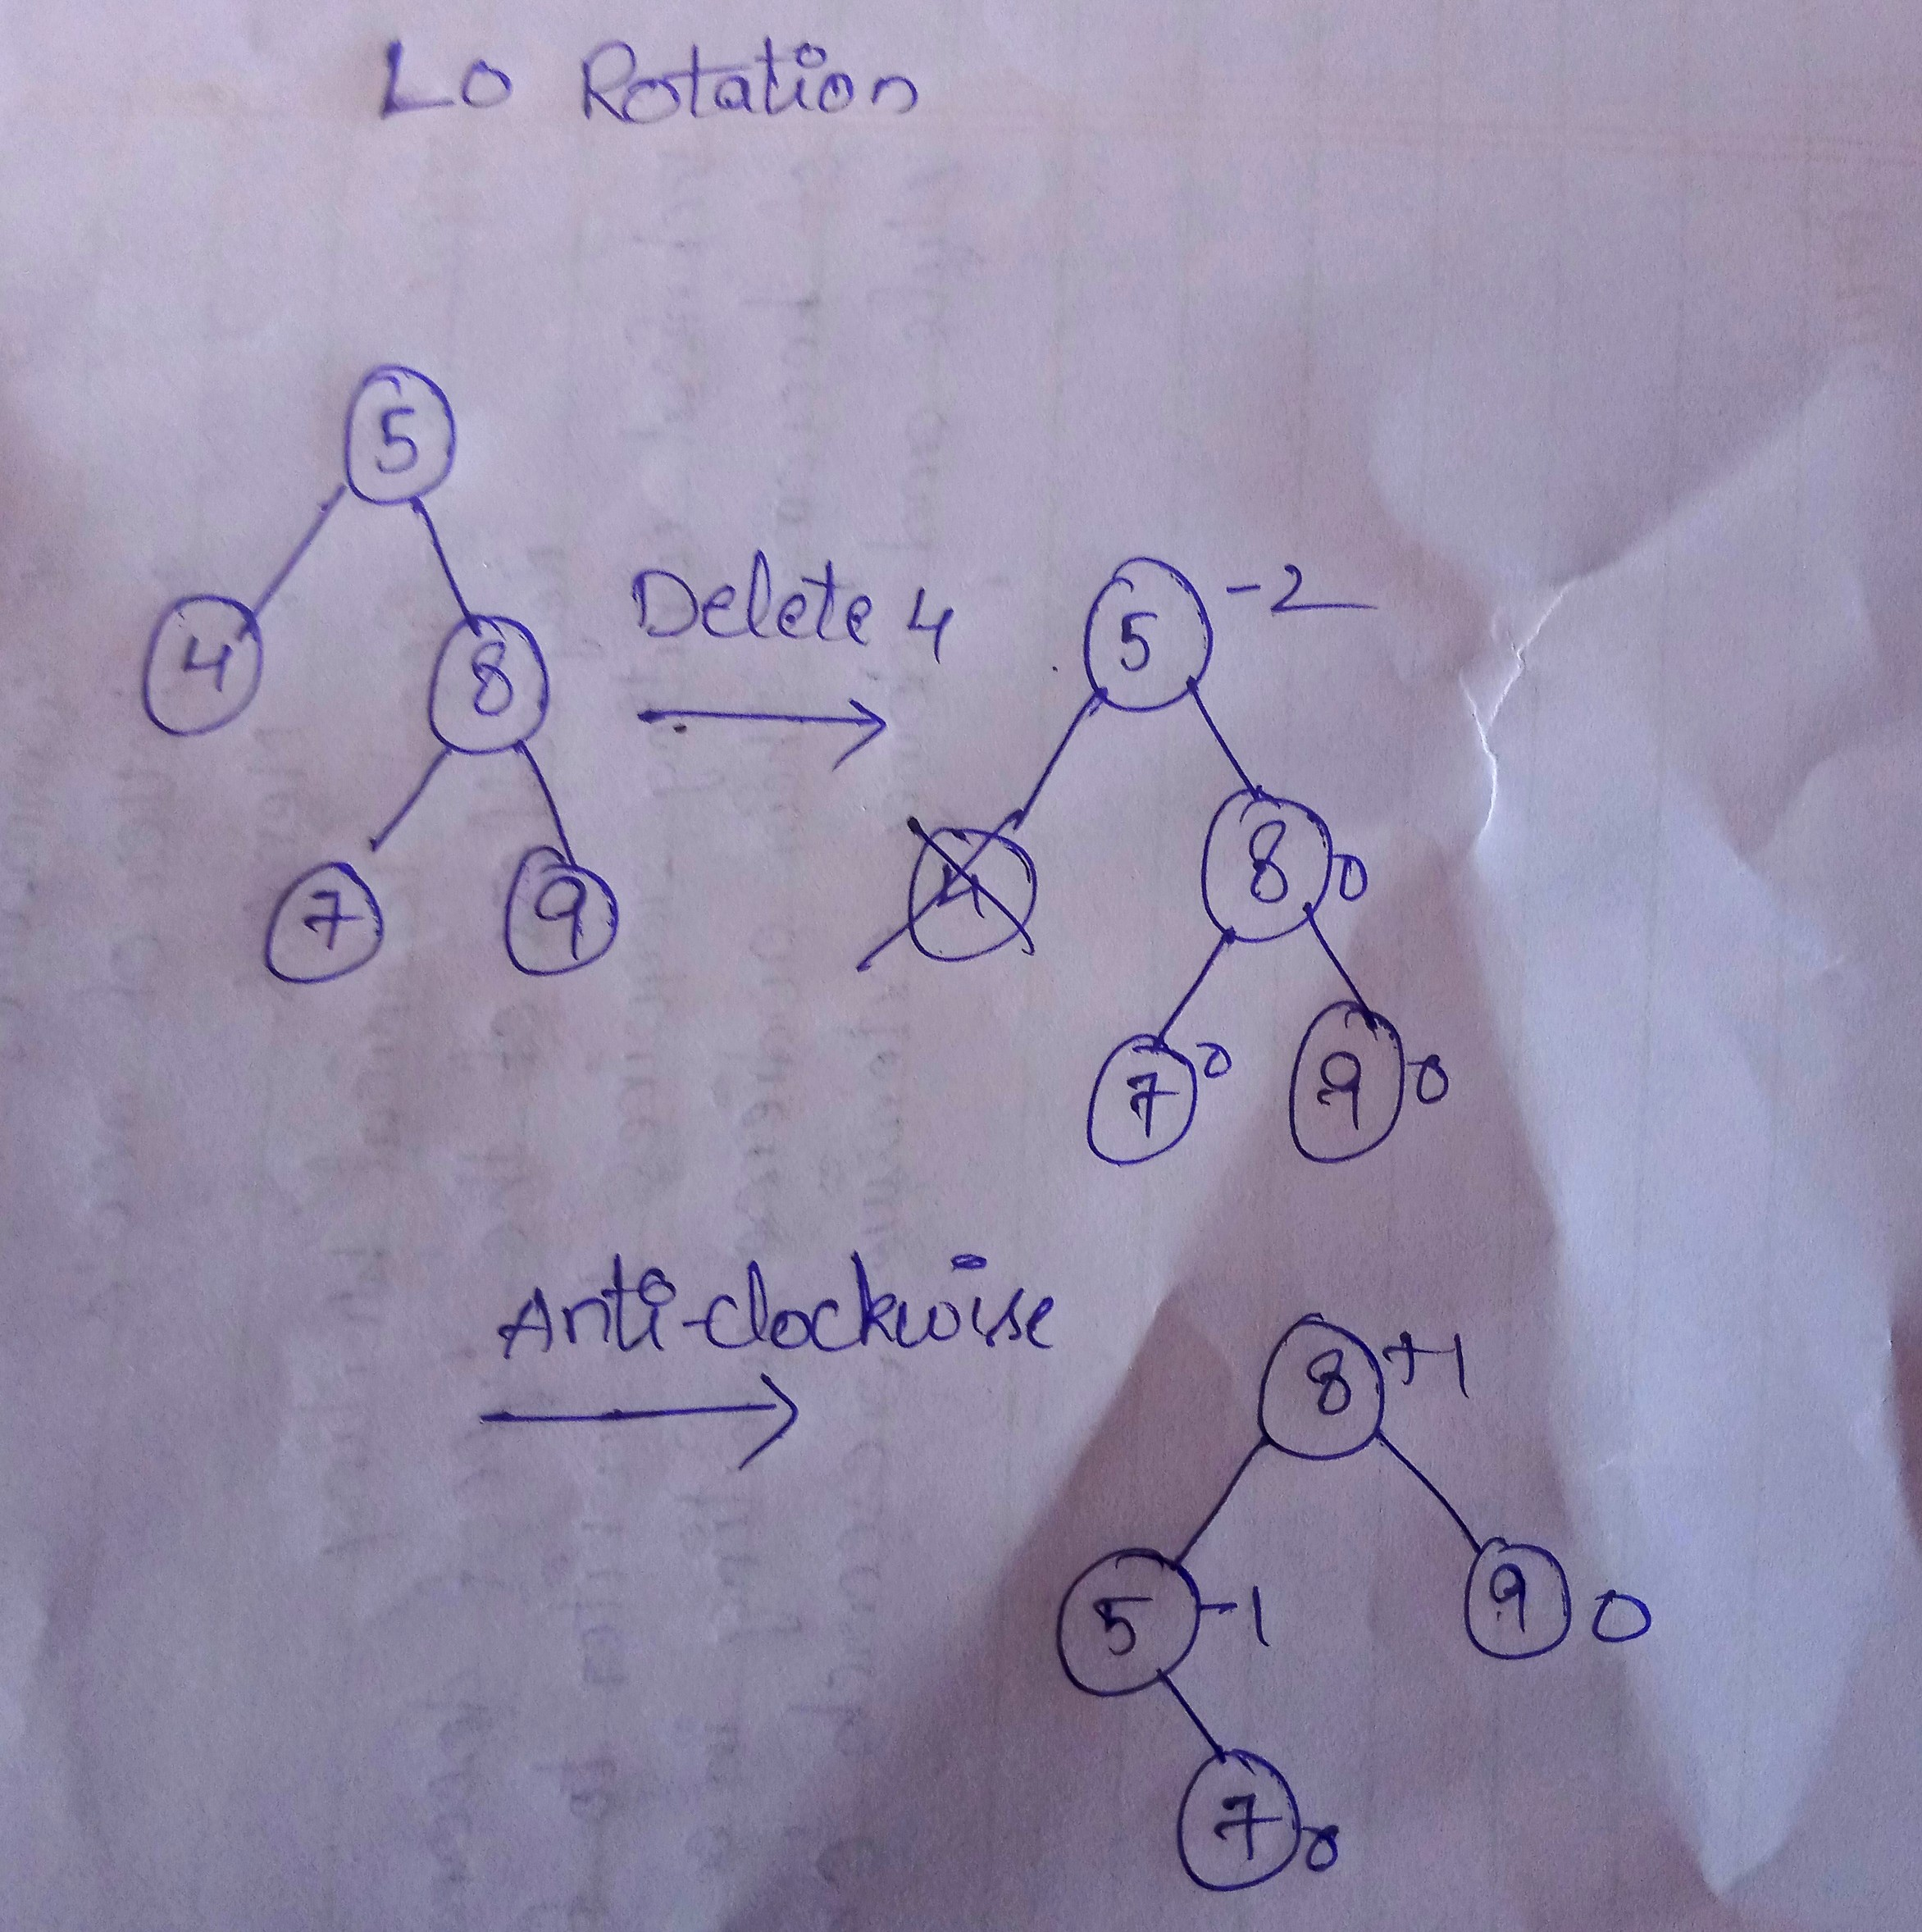 L0 Rotation
5
4 8
7 9
Delete 4
5 -2
4 8 0
7 0 9 0
Anti-clockwise
8 +1
5 -1 9 0
7 0